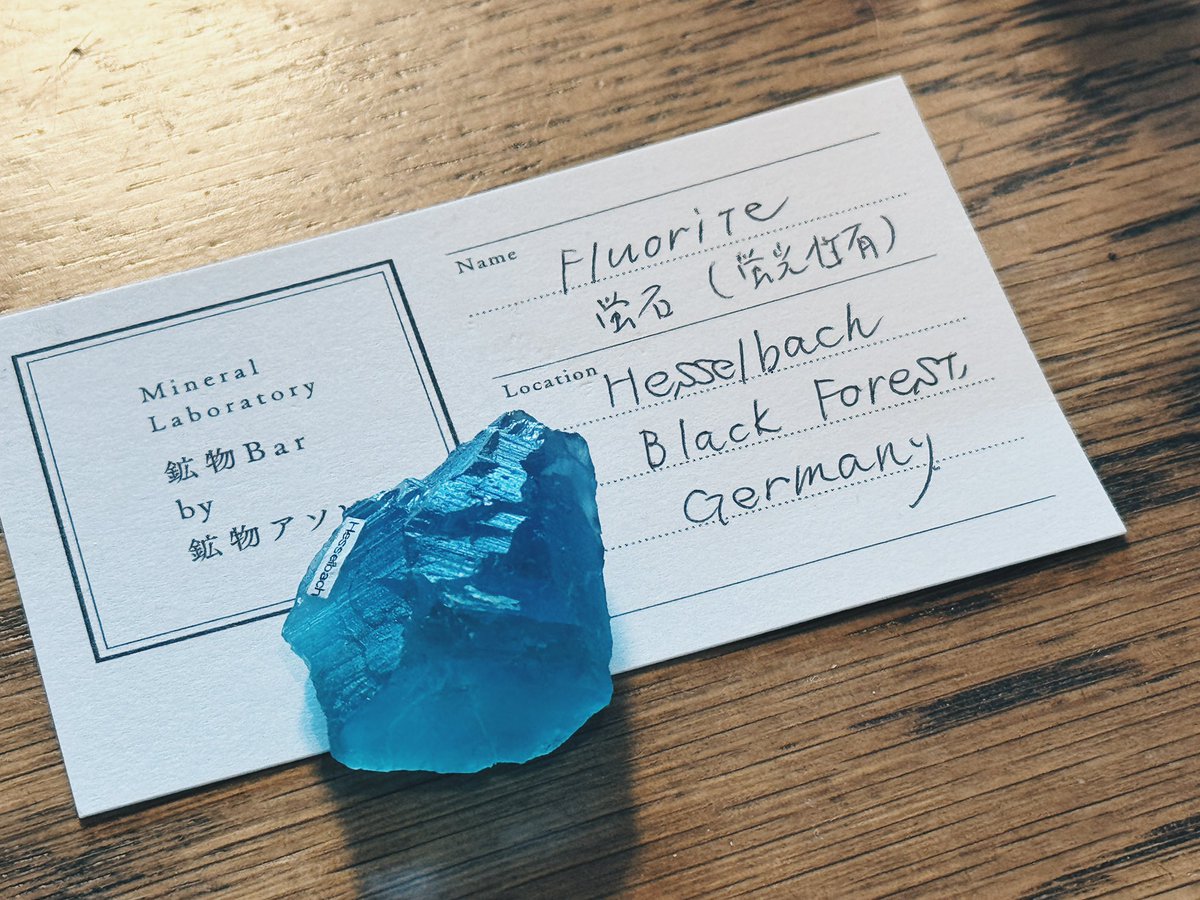 Mineral
Laboratory
鉱物Bar
by
鉱物アソ
Name
Fluorite
蛍石 (蛍光性有)
Location
Hesselbach
Black Forest,
Germany
Hesselbach